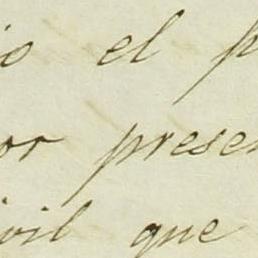 io el p
or presen
ivil que